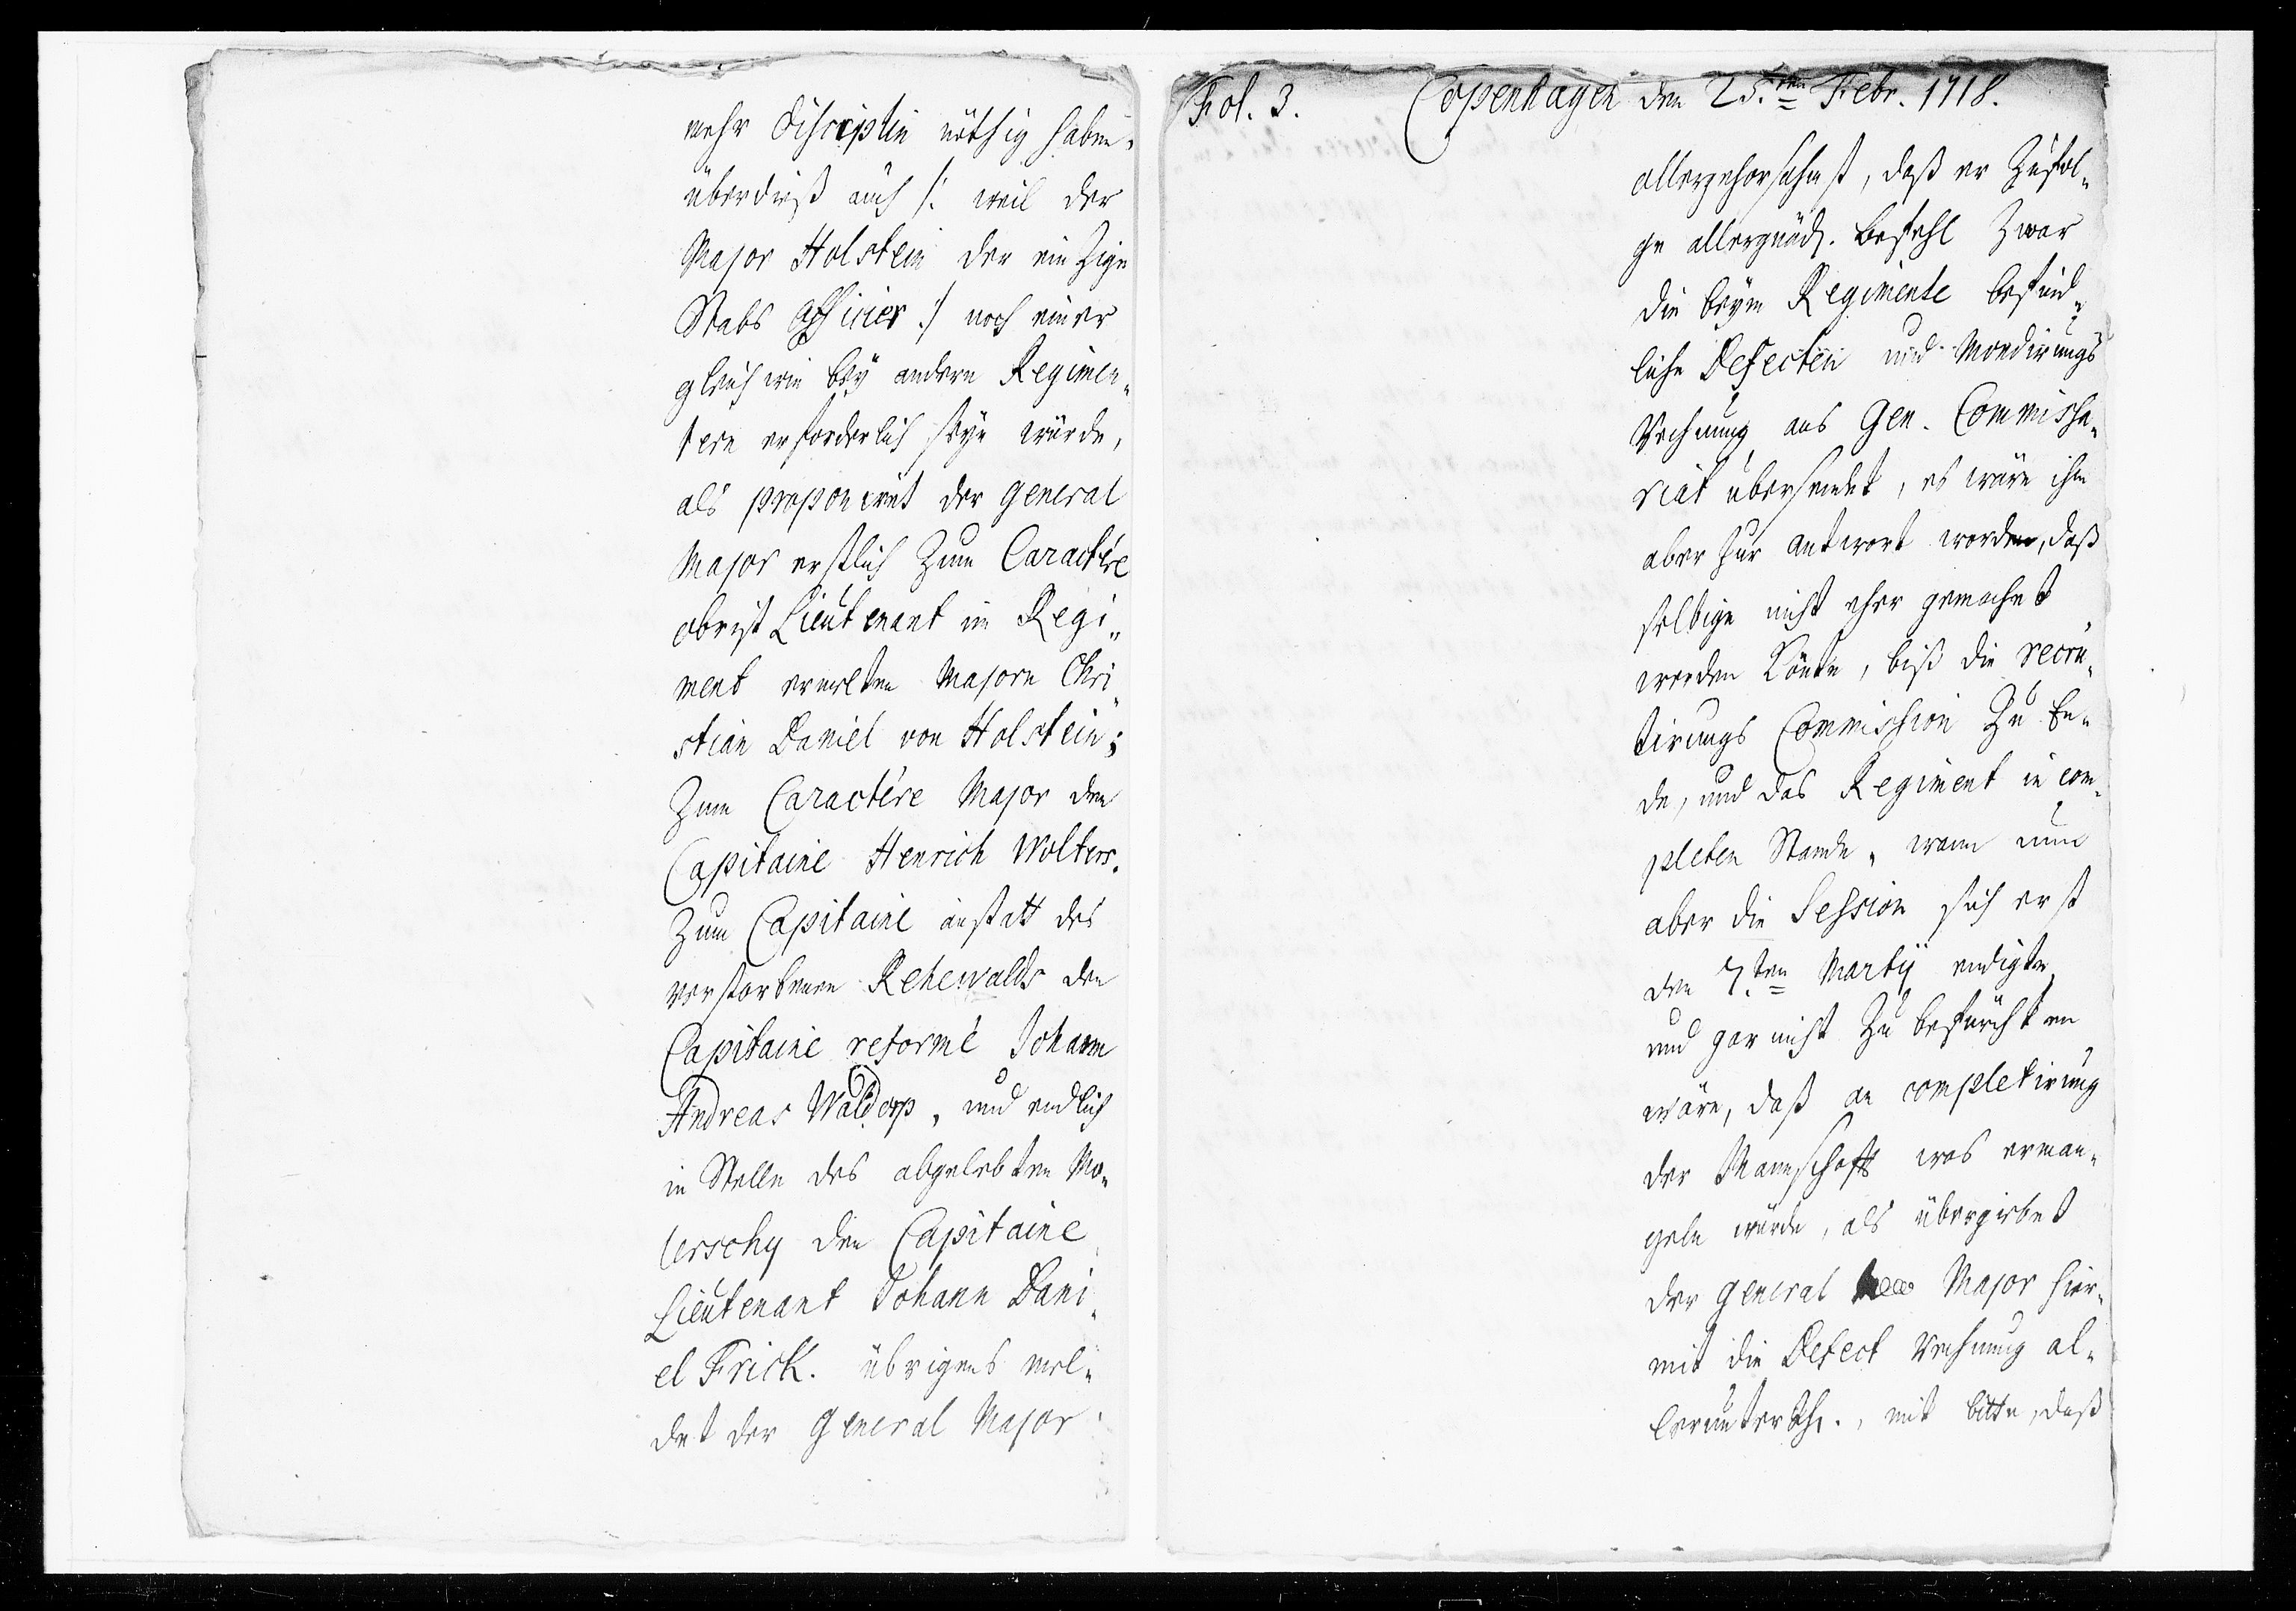 mehr disciplin nöthig haben.
überdieß auch /: weil der
Major Holstein der einzige
Stabs officier :/ noch einer
gleich wie bey andern Regimen„
tern erforderlich seyn würde,
als proponirt der General
Major erstlich zum Caractére
obrist Lieutenant im Regi„
ment ermelten Majorn Chri„
stian Daniel von Holstein;
zum Caractére Major den
Capitaine Henrich Wolters.
zum Capitaine anstatt des
verstorbenen Rehewalds den
Capitaine reformé Johann
Andreas Waldorp, und endlich
in Stelle des abgelebten Mo„
lerschy den Capitaine
Lieutenant Johann Dani„
el Frick. übrigens mel„
det der General Major
Fol. 3. Copenhagen den 25.ten Febr. 1718.
allergehorsahmst, daß er Zufol„
ge allergnäd. befehl zwar
die beym Regimente befind„
liche Defecten und Mondirungs
Rechnung ans Gen. Commissa„
riat übersendet, es wäre ihm
aber zur antwort worden, daß
selbige nicht eher gemachet
werden könte, biß die recru„
tirungs Commission zu En„
de, und das Regiment in com„
pleten Stande, wann nun
aber die Session sich erst
den 7.ten Martij endigte,
und gar nicht zu befürchten
wäre, daß an completirung
der Mannschafft was erman„
geln würde, als übergiebet
der General Major hier„
mit die Defect Rechnung al„
lerunterth., mit bitte, daß